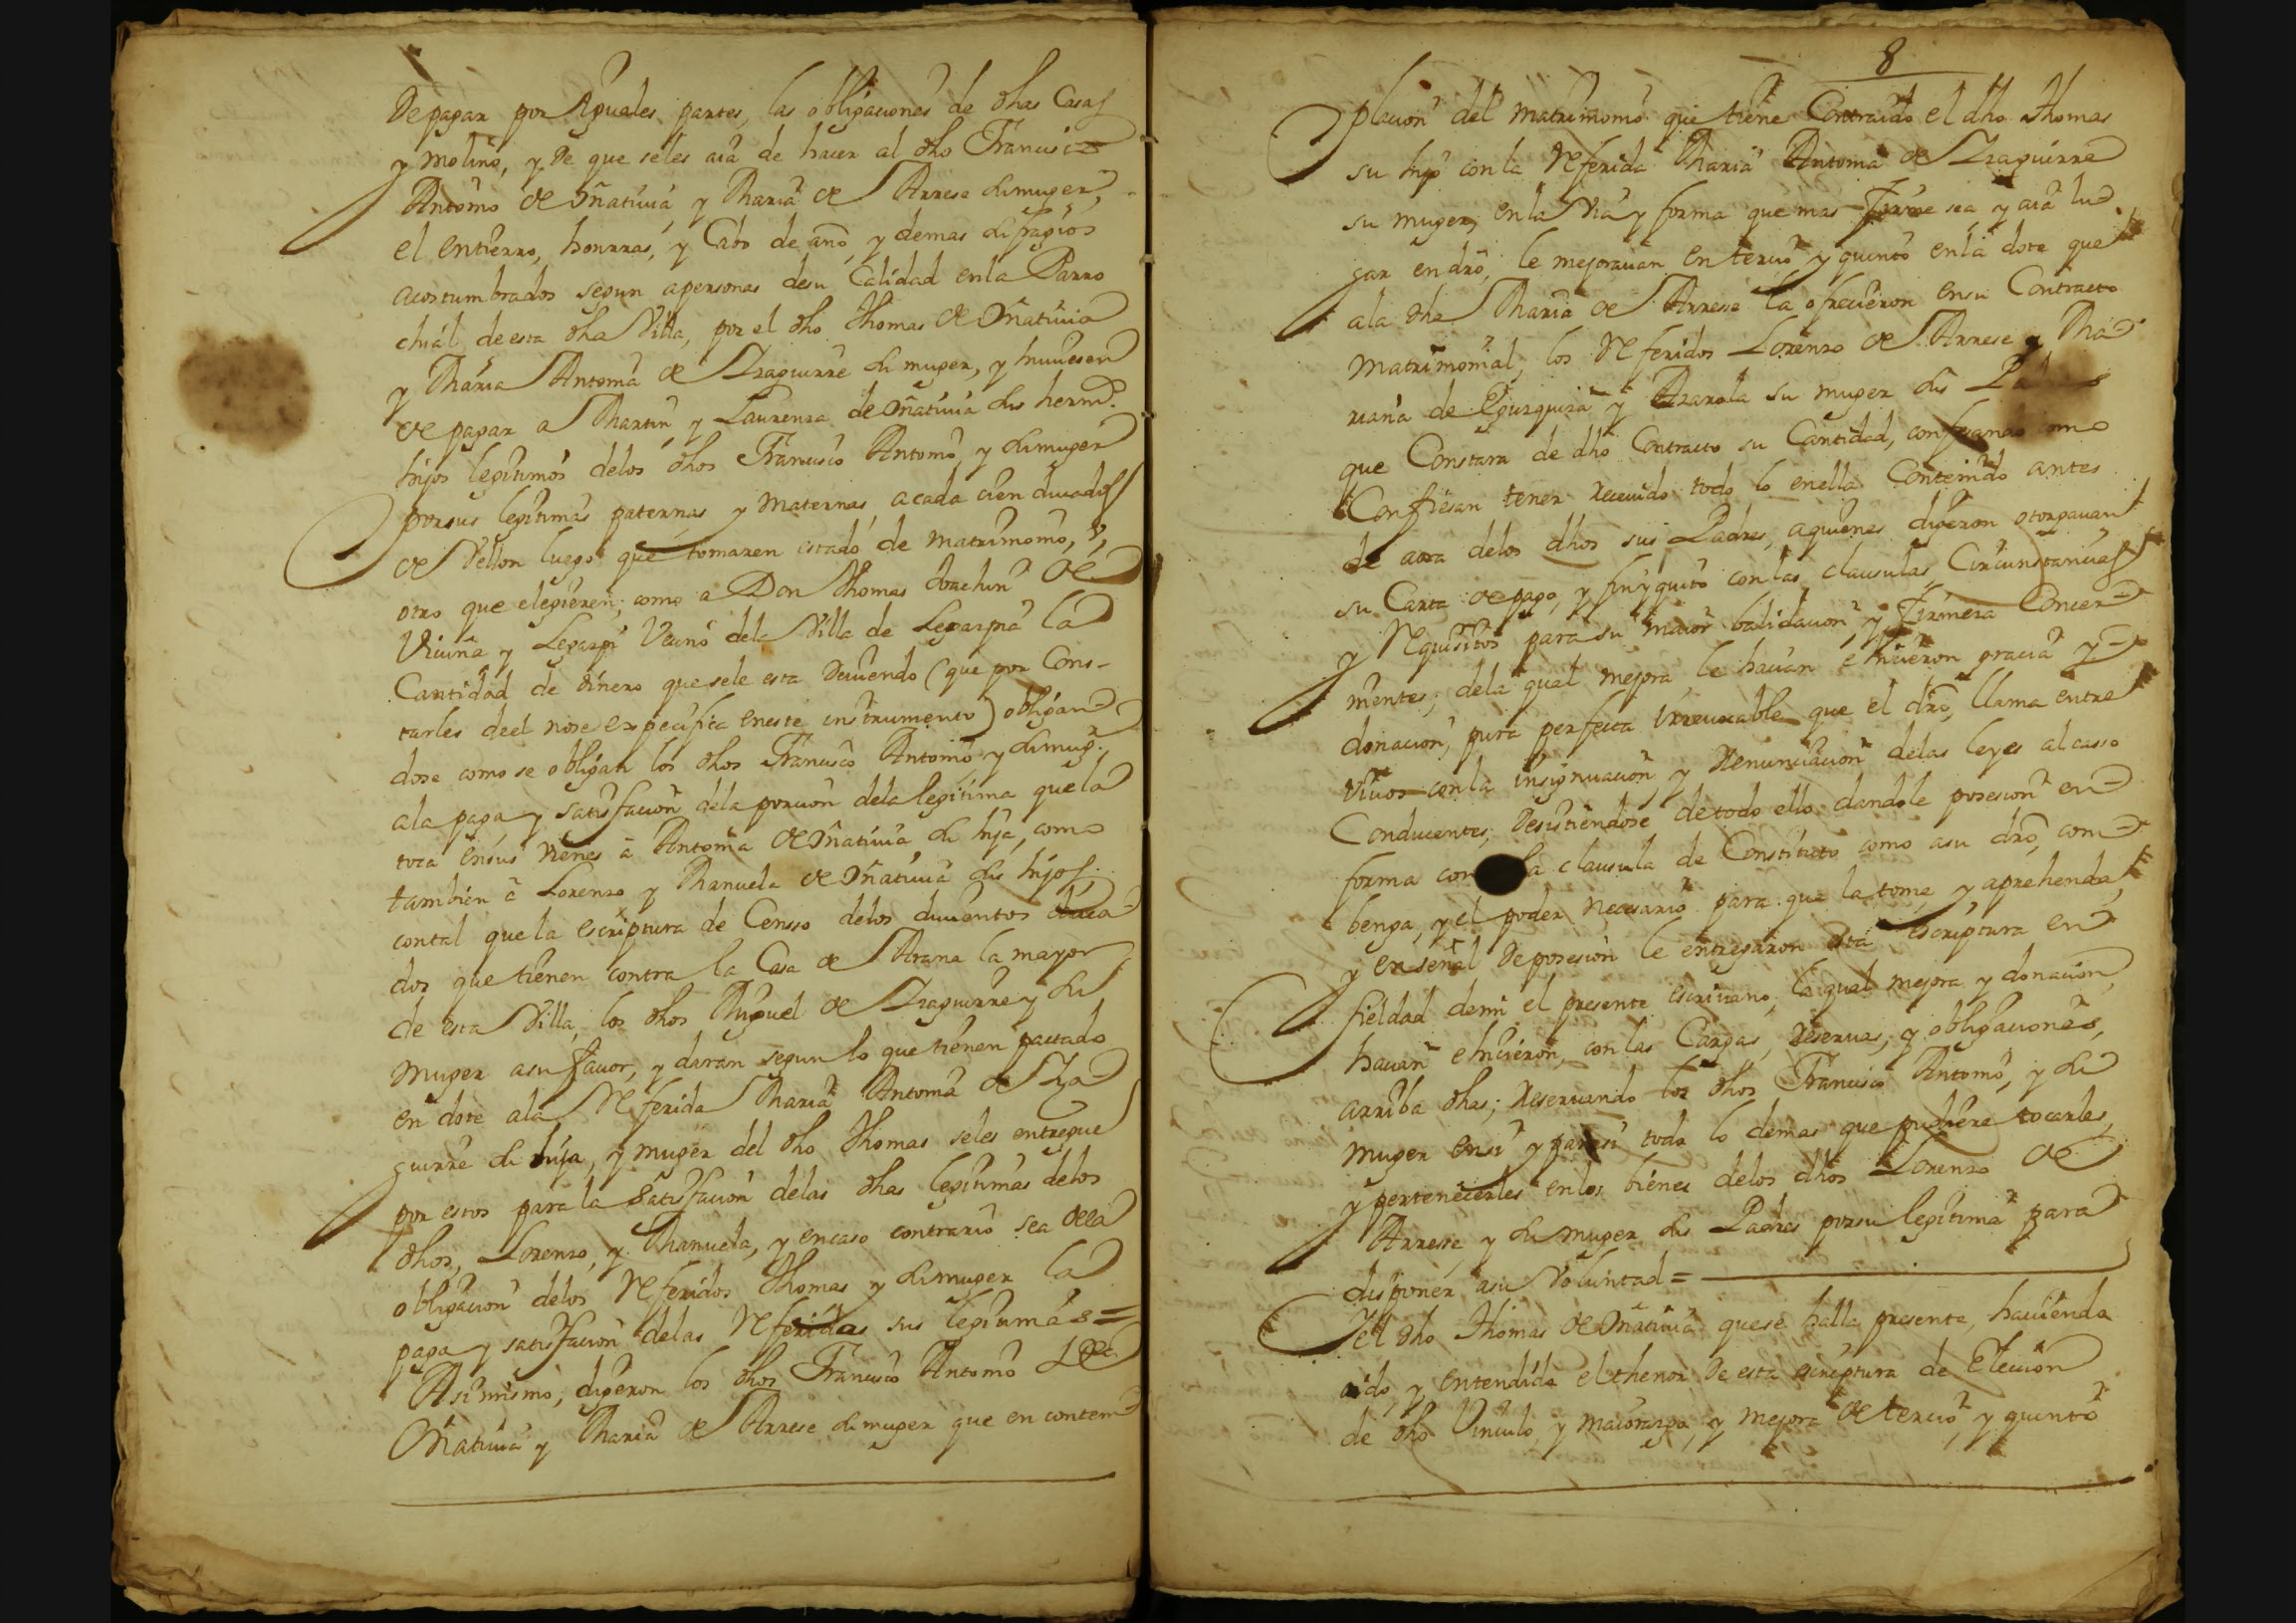 De pagar por Yguales partes, las obligaciones de dhas Casas
y molino, y de que seles aia de hacer al dho Francisco
Antonio de Oñativia y Maria de Arrese su muger,
el entierro, honrras, y Cabo de año, y demas sufragios
acostumbrados segun apersonas desu Calidad enla Parro
chial de esta dha Villa, por el dho Thomas de Oñativia
y Maria Antonia de Yzaguirre su muger, y huuiesen
de pagar a Martin y Laurenza de Oñativia sus herm.s
hijos legitimos delos dhos Francisco Antonio y su muger
por sus legitimas paternas y maternas acada cien ducados
de Vellon luego que tomaren estado de matrimonio, v,
otro que eligieren; como a Don Thomas Joachin de
Vicuña y Legazpi Vecino dela Villa de Legazpia la
Cantidad de dinero que sele esta Deuiendo (que por Cons-
tarles deel nose expecifica eneste instrumento) obligan
dose como se obligan los dhos Francisco Antonio y su mug.r
ala paga y satisfacion dela porcion dela legitima que la
toca ensus vienes a Antonia de Oñativia su hija, como
tambien a Lorenzo y Manuela de Oñativia sus hijos,
contal que la escriptura de Censso delos ducientos duca
dos que tienen contra la Casa de Arana la mayor
de esta Villa, los dhos Miguel de Yzaguirre y su
muger asu favor, y daran segun lo que tienen pactado
en dote ala Referida Maria Antonia de Yza
guirre su hija, y muger del dho Thomas seles entregue
por estos para la satisfacion delas dhas legitimas delos
dhos, Lorenzo, y Manuela, y encaso contrario sea dela
obligacion delos Referidos Thomas y su muger la
paga y satisfacion delas Referidas sus legitimas =
Asimismo, digeron los dhos Francisco Antonio de
Oñativia y Maria de Arrese su muger que en contem
8
placion del matrimonio que tiene Contraido el dho Thomas
su hijo con la Referida Maria Antonia de Yzaguirre
su muger, enla via y forma que mas firme sea y aia lu
gar en dro, le mejorauan en tercio y quinto enla dote que
ala dha Maria de Arrese la ofrecieron ensu Contracto
matrimonial, los Referidos Lorenzo de Arrese y Ma
riana de Egurquiza y Azarola su muger sus
que Constara de dho Contracto su Cantidad, confesando como
Confiesan tener Recevido todo lo enella Contenido antes
de aora delos dhos sus Padres, aquienes digeron otorgauan
su Carta de pago, y finyquito con las clausulas Circunstancias
y Requisitos para su maior balidacion y firmeza Concer
nientes; dela qual mejora le hacian e hicieron gracia y
donacion, pura perfecta irreuocable que el dro, llama entre
viuos con la insignuacion, y Renunciacion delas leyes al casso
Conducentes, desistiendose de todo ello dandole posesion en
forma con la clausula de Constituto como asu dro, com
benga, y el poder necesario para que la tome, y aprehenda,
y en señal de posesion le entregaron esta escriptura en
fieldad demi el presente escriuano, la qual mejora y donacion,
hacian e hicieron, con las Cargas, Reservas, y obligaciones,
arriba dhas; Reseruando los dhos Francisco Antonio, y su
muger ensi y parasi todo lo demas que pudiere tocarles,
y pertenecerles enlos bienes delos dhos Lorenzo de
Arrese, y su muger sus Padres por su legitima para
disponer asu Voluntad =
Yel dho Thomas de Oñativia que se halla presente, hauiendo
oido, y entendido el thenor de esta escriptura de Elecion
de dho Vinculo, y maiorazgo, y mejora de tercio y quinto